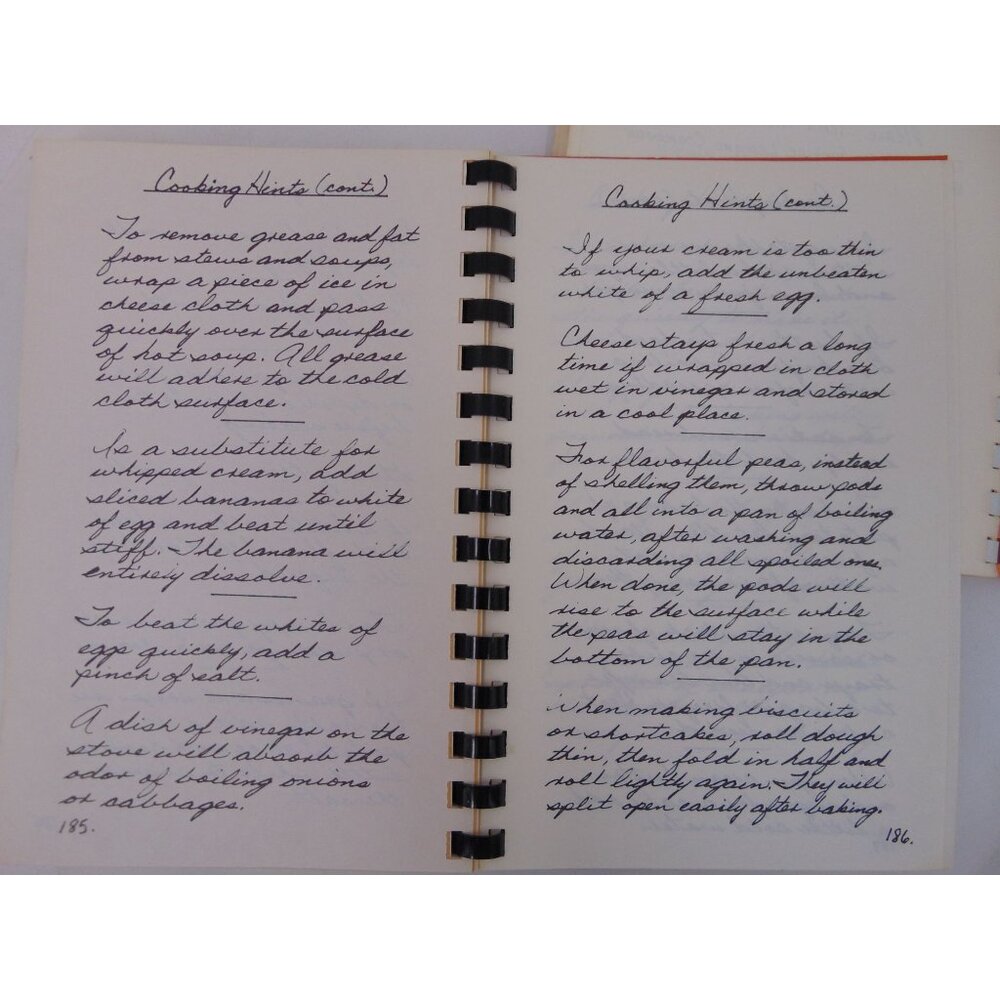 Cooking Hints (cont.)
To remove grease and fat
from stews and soups,
wrap a piece of ice in
cheese cloth and pass
quickly over the surface
of hot soup. All grease
will adhere to the cold
cloth surface.
As a substitute for
whipped cream, add
sliced bananas to white
of egg and beat until
stiff. The banana will
entirely dissolve.
To beat the whites of
eggs quickly, add a
pinch of salt.
A dish of vinegar on the
stove will absorb the
odor of boiling onions
or cabbages.
185.
Cooking Hints (cont.)
If your cream is too thin
to whip, add the unbeaten
white of a fresh egg.
Cheese stays fresh a long
time if wrapped in cloth
wet in vinegar and stored
in a cool place.
For flavorful peas, instead
of shelling them, throw pods
and all into a pan of boiling
water, after washing and
discarding all spoiled ones.
When done, the pods will
rise to the surface while
the peas will stay in the
bottom of the pan.
When making biscuits
or shortcakes, roll dough
thin, then fold in half and
roll lightly again. They will
split open easily after baking.
186.